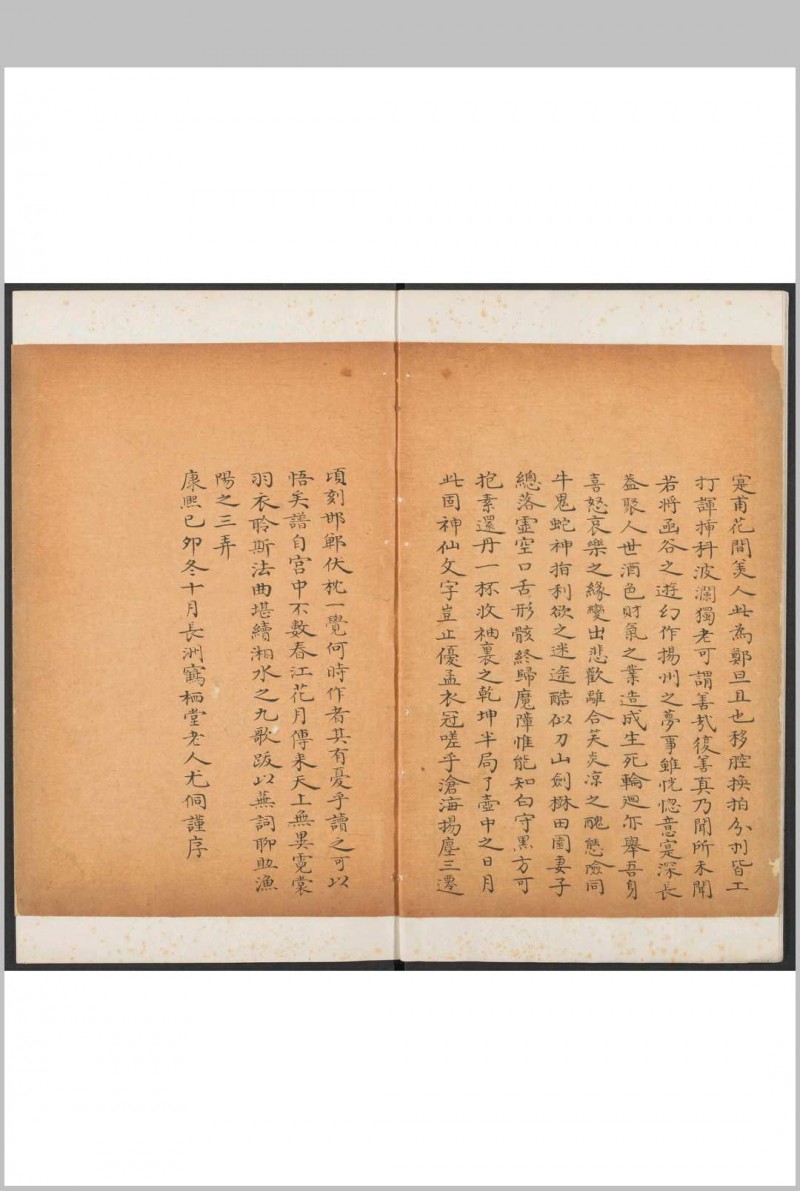 寔甫花間美人此為鄭旦且也移腔換拍分刌皆工
打諢揷科波瀾獨老可謂善哉復善真乃聞所未聞
若將函谷之遊幻作揚州之夢事雖恍惚意寔深長
葢聚人世酒色財氣之業造成生死輪迴亦舉吾身
喜怒哀樂之緣變出悲歡離合笑炎凉之醜態險同
牛鬼蛇神指利欲之迷途酷似刀山劍樹田園妻子
總落虛空口舌形骸終歸魔障惟能知白守黑方可
抱素還丹一杯收袖裏之乾坤半局了壺中之日月
此固神仙文字豈止優孟衣冠嗟乎滄海揚塵三遷
頃刻邯鄲伏枕一覺何時作者其有憂乎讀之可以
悟矣譜自宫中不數春江花月傳来天上無異霓裳
羽衣聆斯法曲堪續湘水之九歌跋以蕪詞聊助漁
陽之三弄
康熙己卯冬十月長洲鶴栖堂老人尤侗謹序